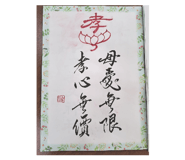 孝
母愛無限
孝心無價